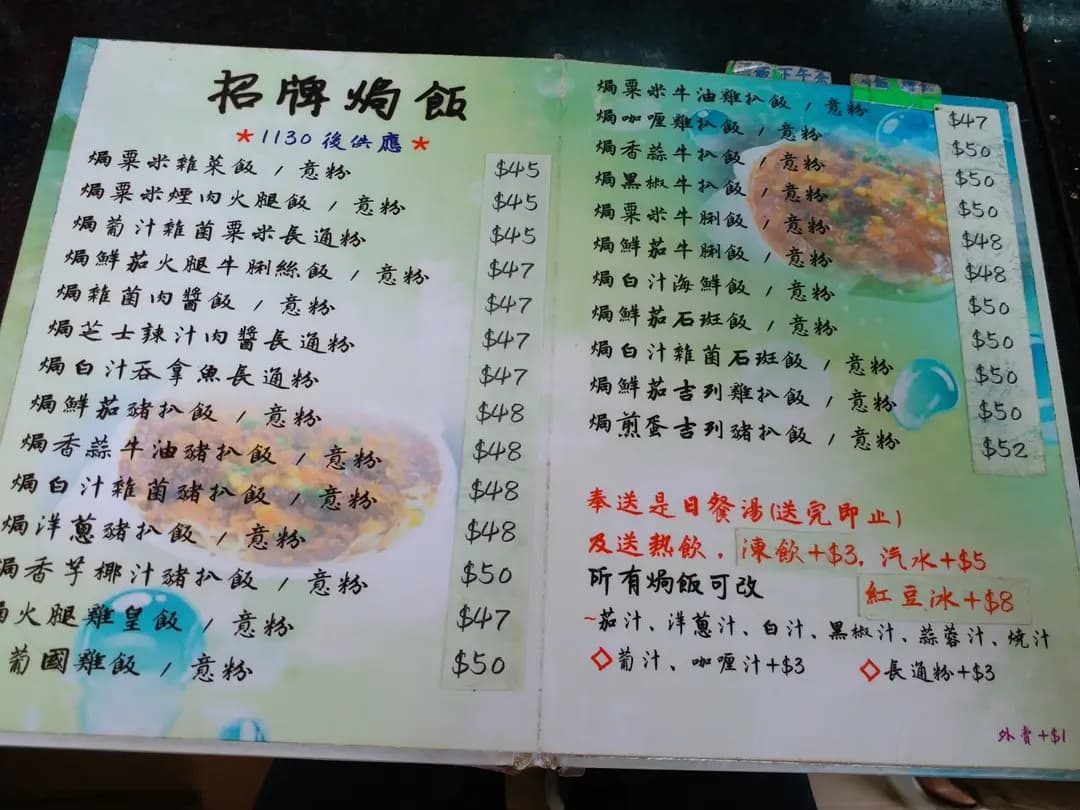 招牌焗飯
*1130後供應*
焗粟米雜菜飯 / 意粉 $45
焗粟米煙肉火腿飯 / 意粉 $45
焗葡汁雜菌粟米長通粉 $45
焗鮮茄火腿牛脷絲飯 / 意粉 $47
焗雜菌肉醬飯 / 意粉 $47
焗芝士辣汁肉醬長通粉 $47
焗白汁吞拿魚長通粉 $47
焗鮮茄豬扒飯 / 意粉 $48
焗香蒜牛油豬扒飯 / 意粉 $48
焗白汁雜菌豬扒飯 / 意粉 $48
焗洋蔥豬扒飯 / 意粉 $48
焗香芋椰汁豬扒飯 / 意粉 $50
焗火腿雞皇飯 / 意粉 $47
葡國雞飯 / 意粉 $50
下午茶
焗粟米牛油雞扒飯 / 意粉 $47
焗咖喱雞扒飯 / 意粉 $50
焗香蒜牛扒飯 / 意粉 $50
焗黑椒牛扒飯 / 意粉 $50
焗粟米牛脷飯 / 意粉 $48
焗鮮茄牛脷飯 / 意粉 $48
焗白汁海鮮飯 / 意粉 $50
焗鮮茄石斑飯 / 意粉 $50
焗白汁雜菌石斑飯 / 意粉 $50
焗鮮茄吉列雞扒飯 / 意粉 $50
焗煎蛋吉列豬扒飯 / 意粉 $52
奉送是日餐湯(送完即止)
及送熱飲，凍飲+$3，汽水+$5
所有焗飯可改 紅豆冰+$8
~茄汁、洋蔥汁、白汁、黑椒汁、蒜蓉汁、燒汁
◇葡汁、咖喱汁+$3 ◇長通粉+$3
外賣+$1